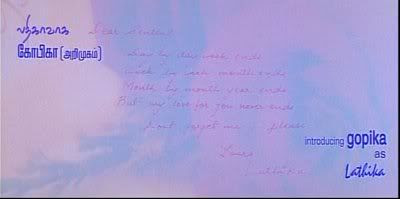 லதிகாவாக
கோபிகா (அறிமுகம்)
Dear
Day by day week ends
week by week month ends
Month by month year ends
But my love for you never ends
dont forget me please
Loves
Lathika
introducing gopika
as
Lathika